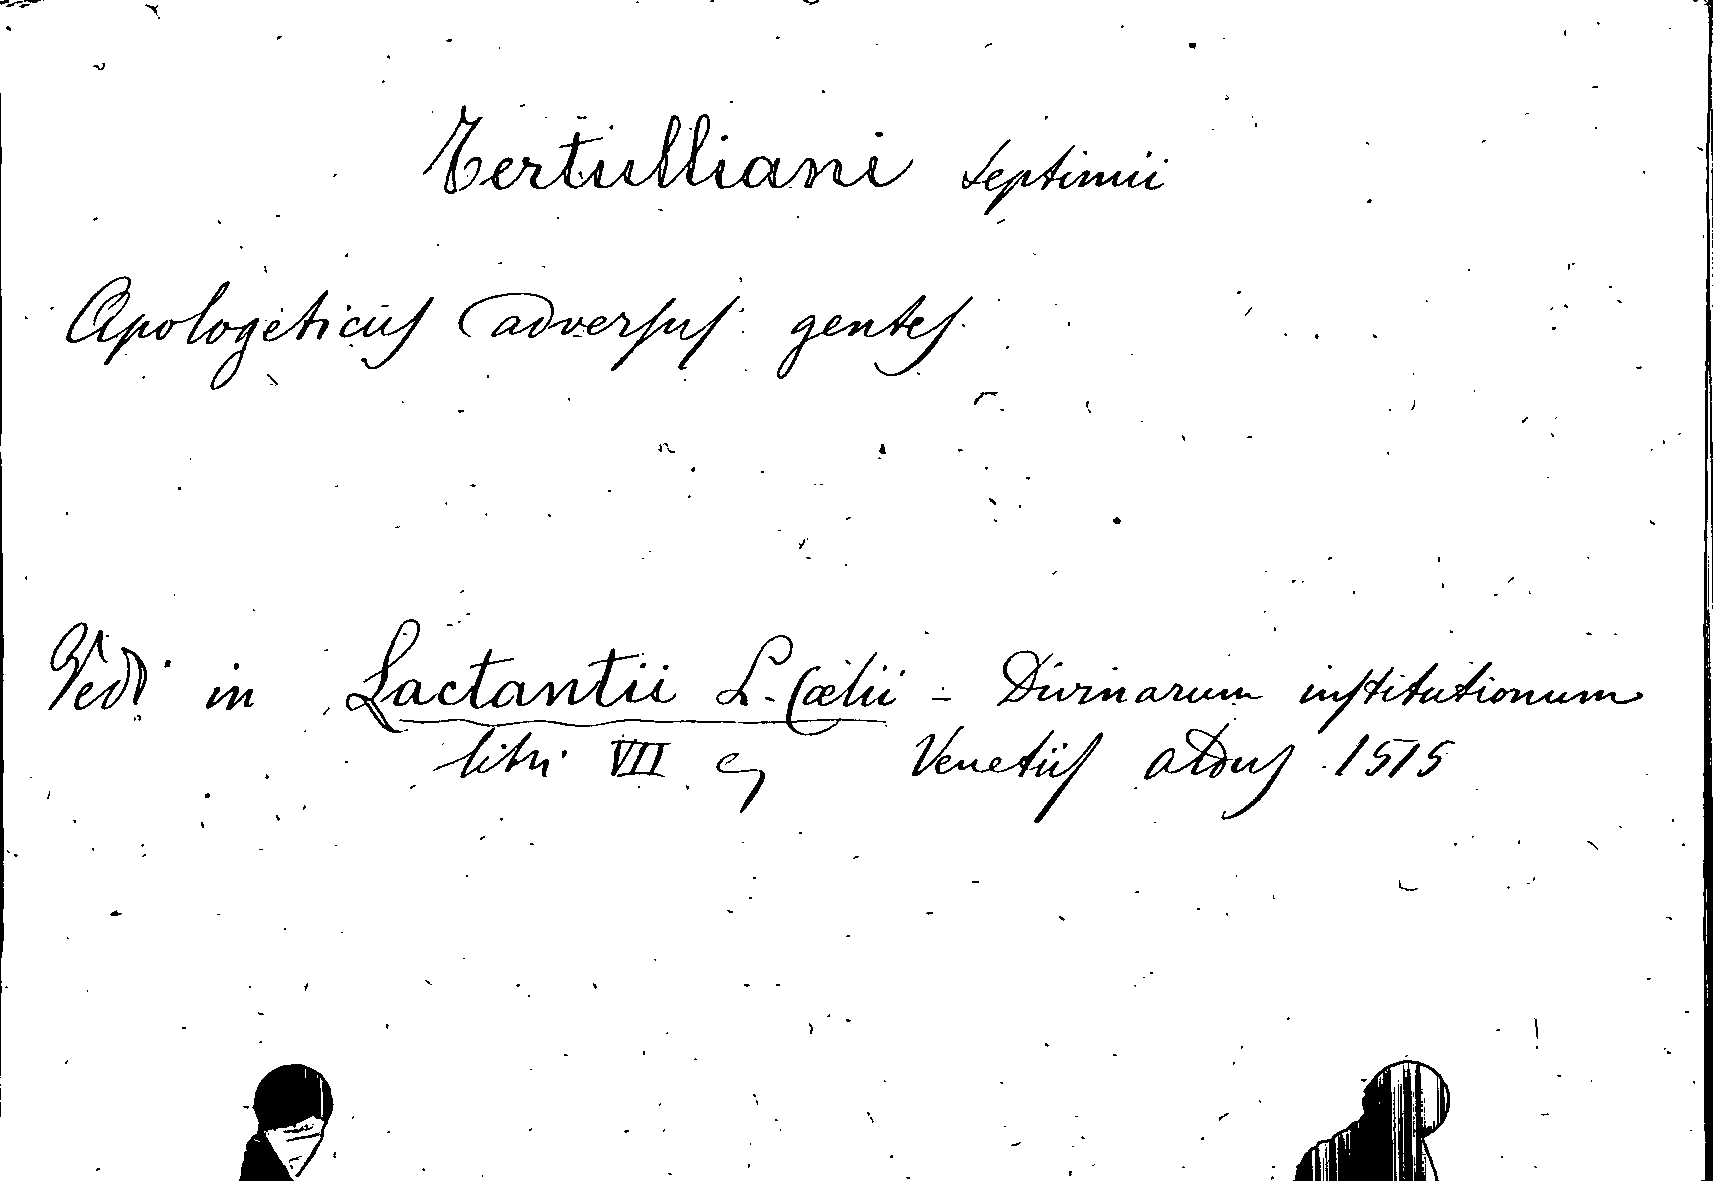 Tertulliani Septimii
Apologeticus adversus gentes
Vedi in Lactantii L. Cœlii - Divinarum institutionum
libri VII Venetiis Aldus 1515